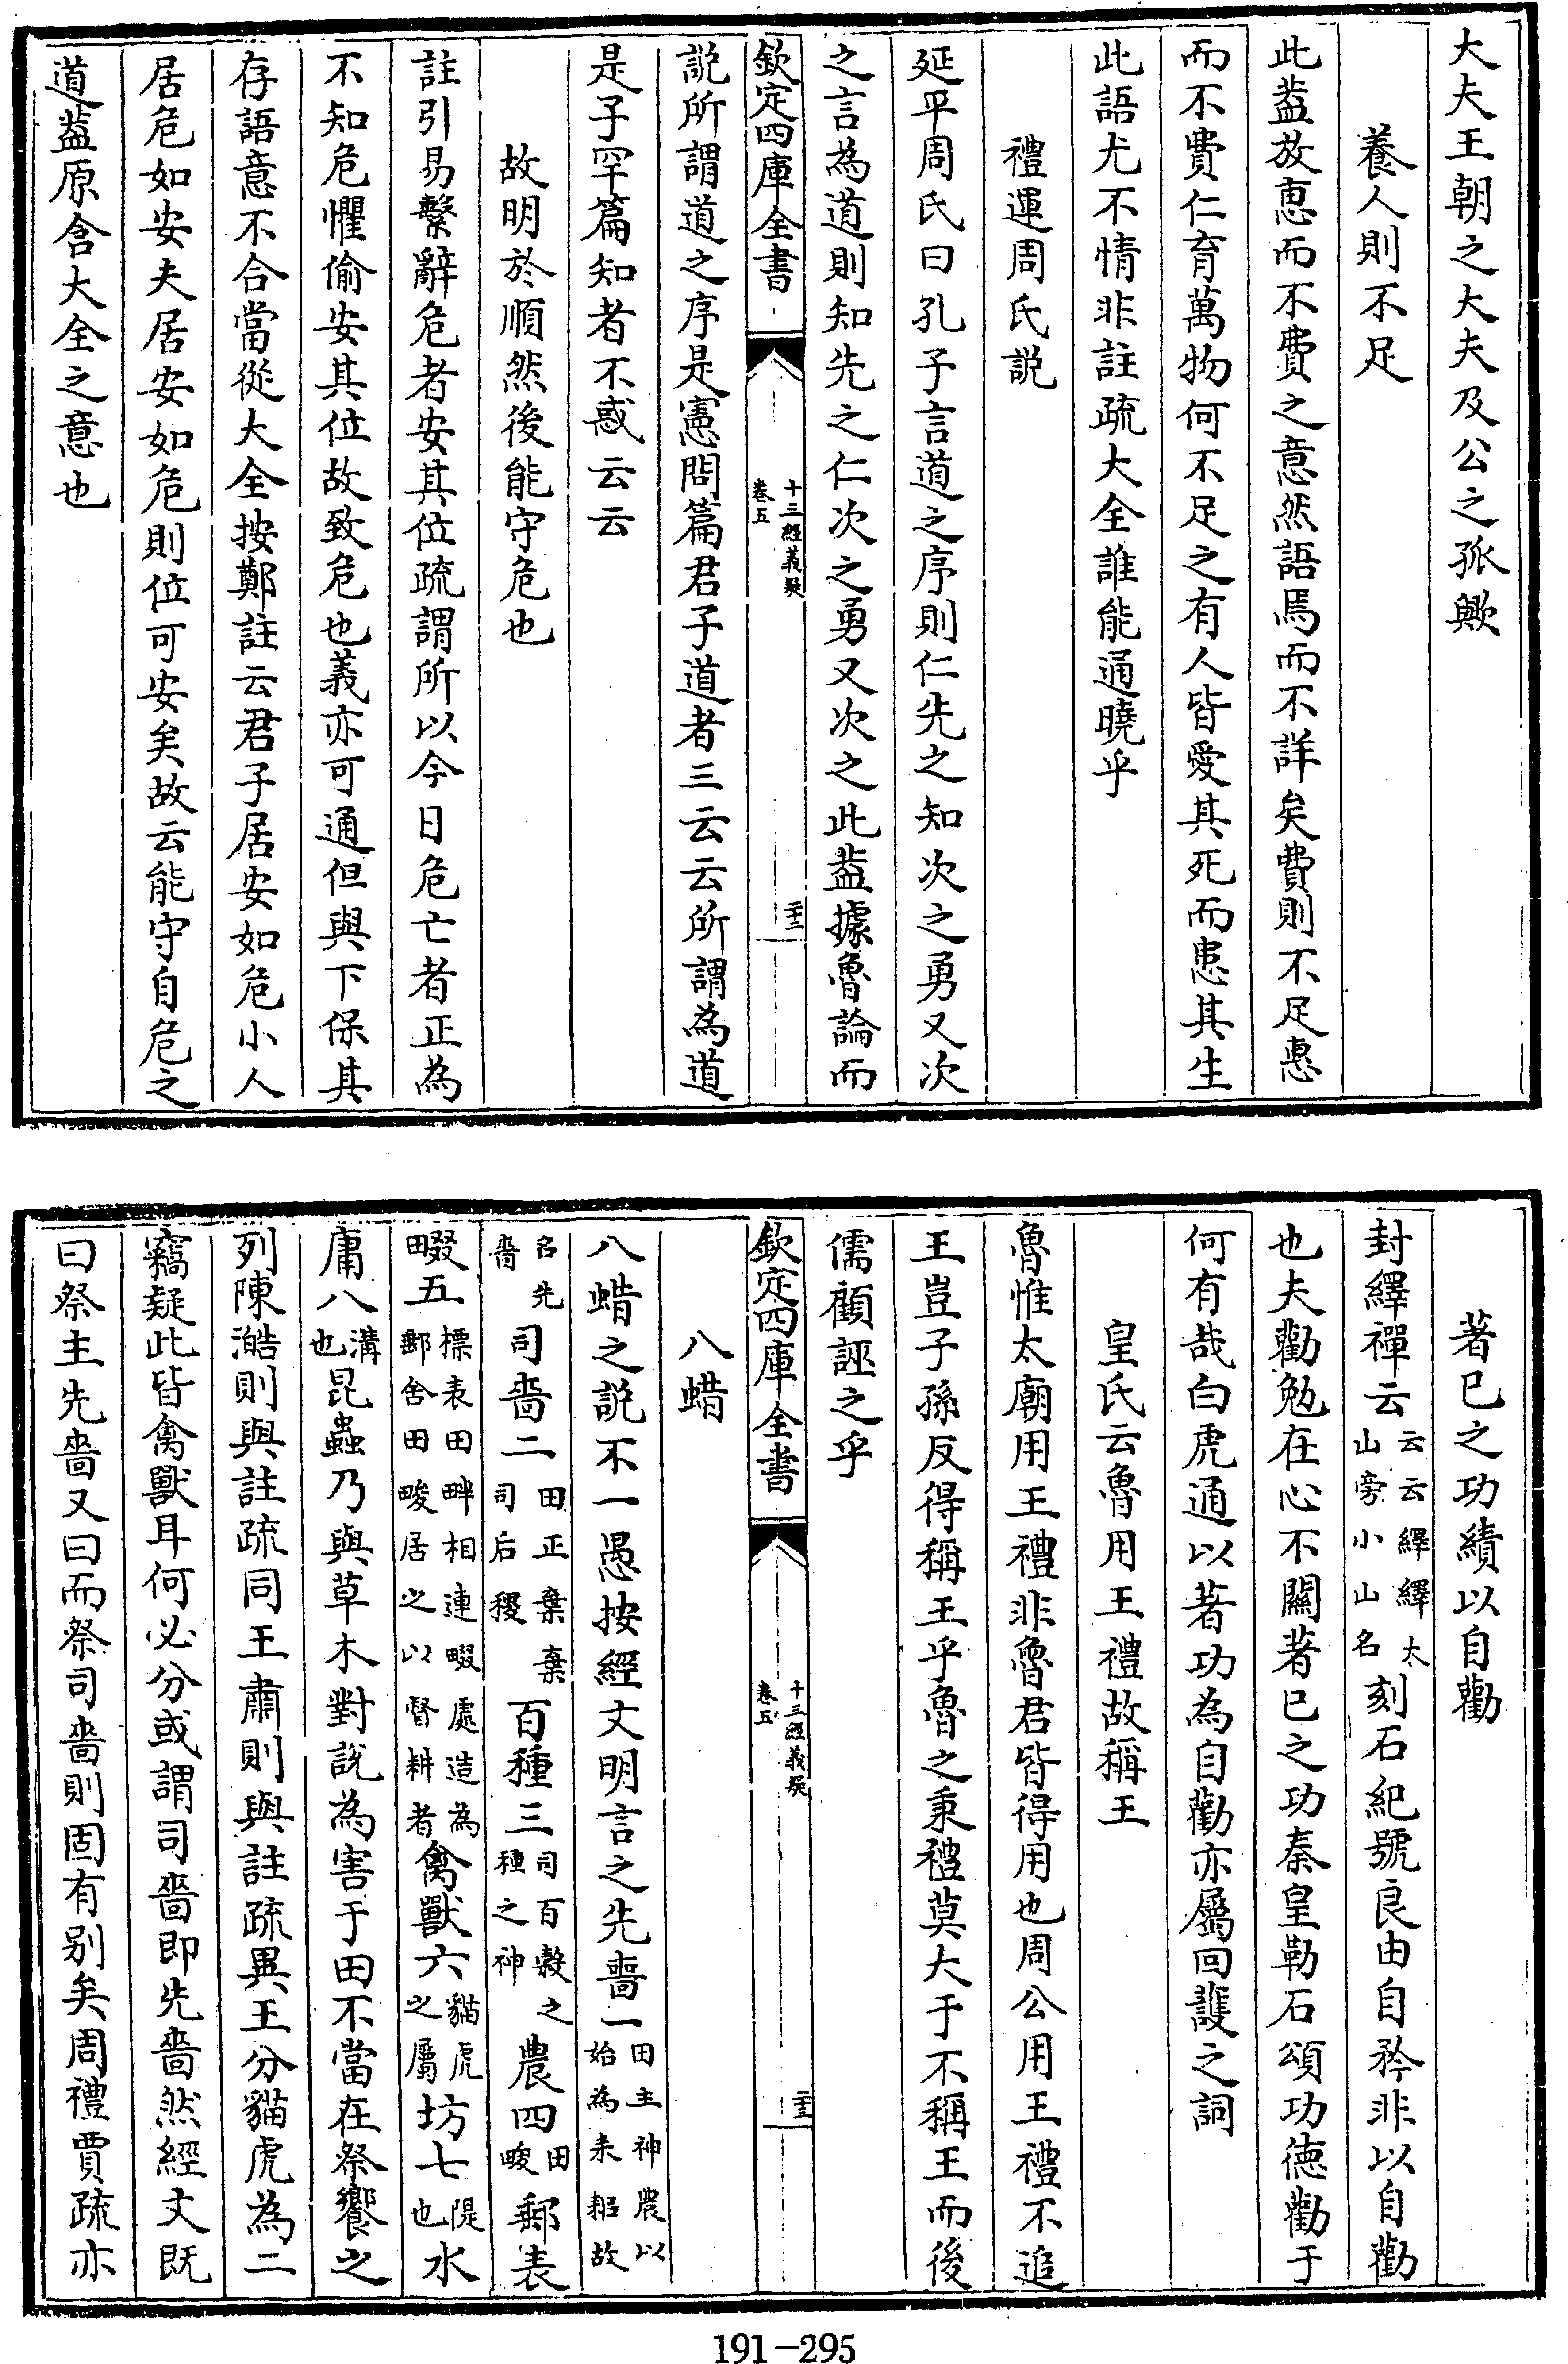 大夫王朝之大夫及公之孤歟
養人則不足
此葢放恵而不費之意然語焉而不詳矣費則不足惠
而不費仁育萬物何不足之有人皆愛其死而患其生
此語尤不情非註疏大全誰能通曉乎
禮運周氏説
延平周氏曰孔子言道之序則仁先之知次之勇又次
之言為道則知先之仁次之勇又次之此葢據魯論而
欽定四庫全書
十三經義疑
卷五
二十二
説所謂道之序是憲問篇君子道者三云云所謂為道
是子罕篇知者不惑云云
故明於順然後能守危也
註引易繫辭危者安其位疏謂所以今日危亡者正為
不知危懼偷安其位故致危也義亦可通但與下保其
存語意不合當從大全按鄭註云君子居安如危小人
居危如安夫居安如危則位可安矣故云能守自危之
道葢原含大全之意也
著已之功績以自勸
封繹禪云云云繹繹太山旁小山名刻石紀號良由自矜非以自勸
也夫勸勉在心不闗著已之功秦皇勒石頌功德勸于
何有哉白虎通以著功為自勸亦屬回護之詞
皇氏云魯用王禮故稱王
魯惟太廟用王禮非魯君皆得用也周公用王禮不追
王豈子孫反得稱王乎魯之秉禮莫大于不稱王而後
儒顧誣之乎
欽定四庫全書
十三經義疑
卷五
二十三
八蜡
八蜡之説不一愚按經文明言之先嗇一田主神農以始為耒耜故
名先嗇司嗇二田正棄棄司后稷百種三司百穀之種之神農四田畯郵表
畷五標表田畔相連畷處造為郵舍田畯居之以督耕者禽獸六貓虎之屬坊七隄也水
庸八溝也昆蟲乃與草木對說為害于田不當在祭饗之
列陳澔則與註疏同王肅則與註疏異王分貓虎為二
竊疑此皆禽獸耳何必分或謂司嗇即先嗇然經文既
曰祭主先嗇又曰而祭司嗇則固有别矣周禮賈疏亦
191-295